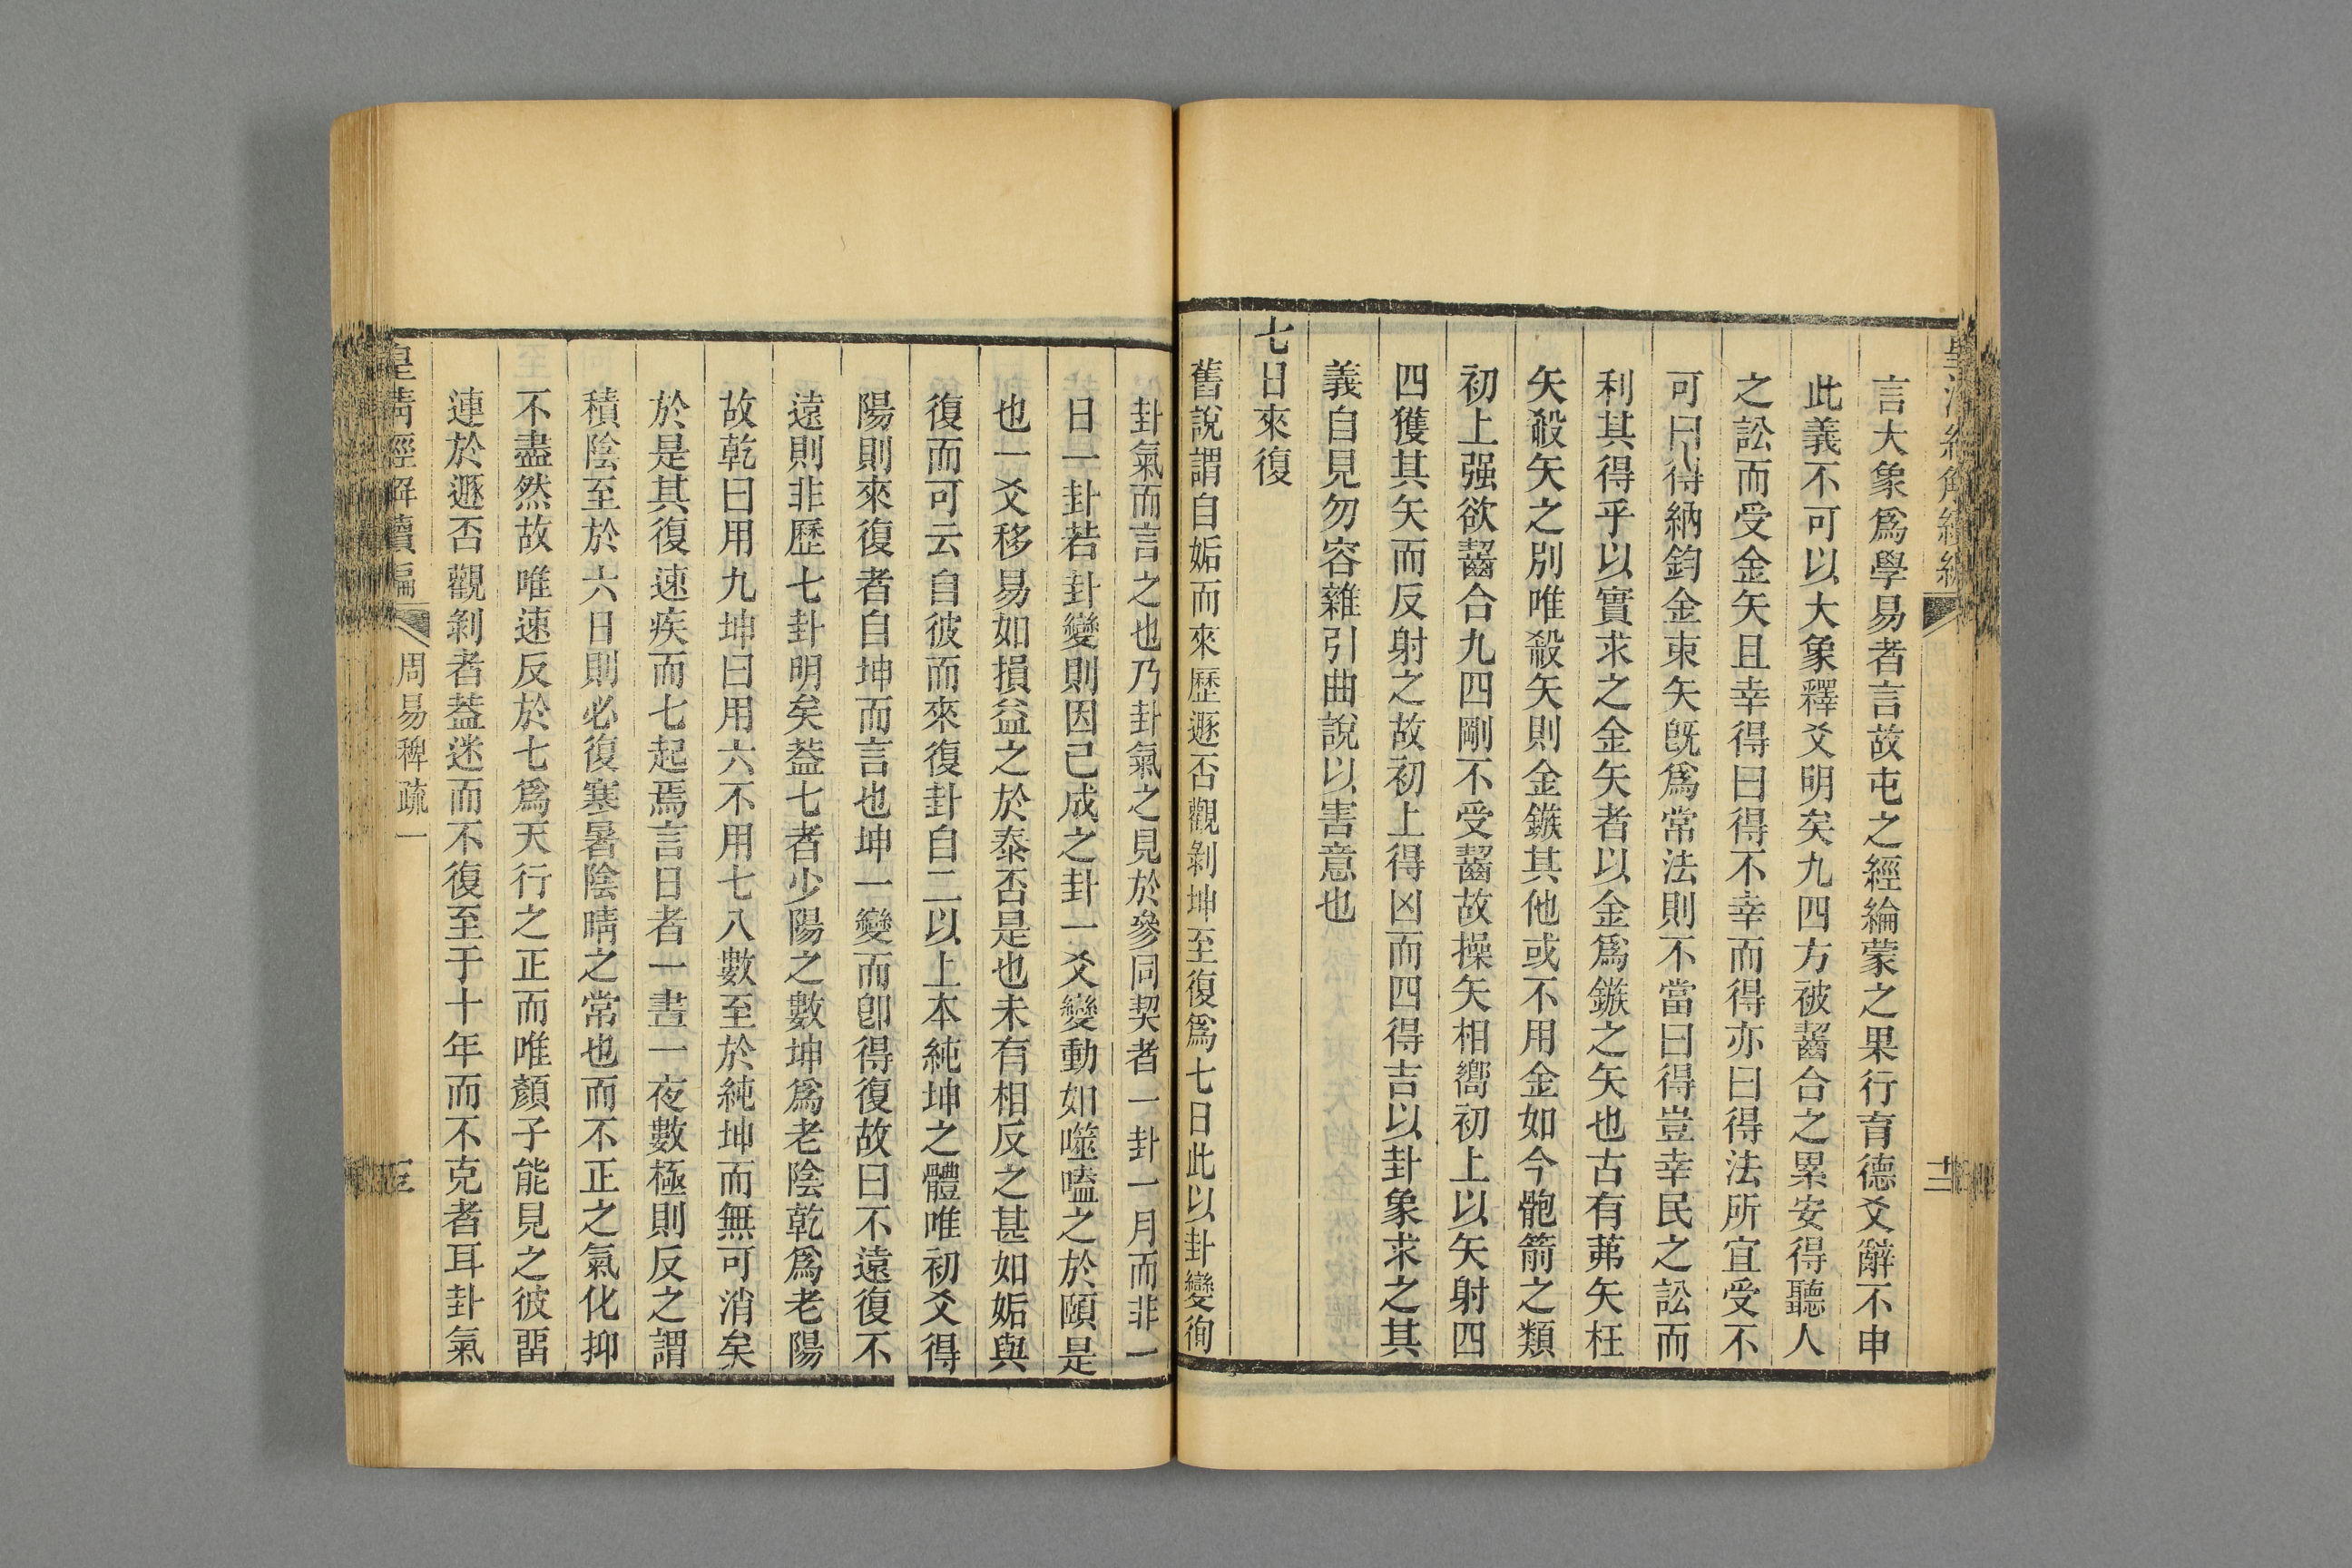 言大象爲學易者言故屯之經綸蒙之果行育德爻辭不申
此義不可以大象釋爻明矣九四方被齧合之累安得聽人
之訟而受金矢且幸得曰得不幸而得亦曰得法所宜受不
可曰得納鈞金束矢旣爲常法則不當曰得豈幸民之訟而
利其得乎以實求之金矢者以金爲鏃之矢也古有茀矢枉
矢殺矢之別唯殺矢則金鏃其他或不用金如今骲箭之類
初上强欲齧合九四剛不受齧故操矢相嚮初上以矢射四
四獲其矢而反射之故初上得凶而四得吉以卦象求之其
義自見勿容雜引曲說以害意也
七日來復
舊說謂自姤而來歷遯否觀剝坤至復爲七日此以卦變徇
卦氣而言之也乃卦氣之見於參同契者一卦一月而非一
日一卦若卦變則因己成之卦一爻變動如噬嗑之於頤是
也一爻移易如損益之於泰否是也未有相反之甚如姤與
復而可云自彼而來復卦自二以上本純坤之體唯初爻得
陽則來復者自坤而言也坤一變而卽得復故曰不遠復不
遠則非歷七卦明矣葢七者少陽之數坤爲老陰乾爲老陽
故乾曰用九坤曰用六不用七八數至於純坤而無可消矣
於是其復速疾而七起焉言日者一晝一夜數極則反之謂
積陰至於六日則必復寒暑陰晴之常也而不正之氣化抑
不盡然故唯速反於七爲天行之正而唯顏子能見之彼畱
連於遯否觀剝者葢迷而不復至于十年而不克者耳卦氣
皇清經解續編
周易稗疏一